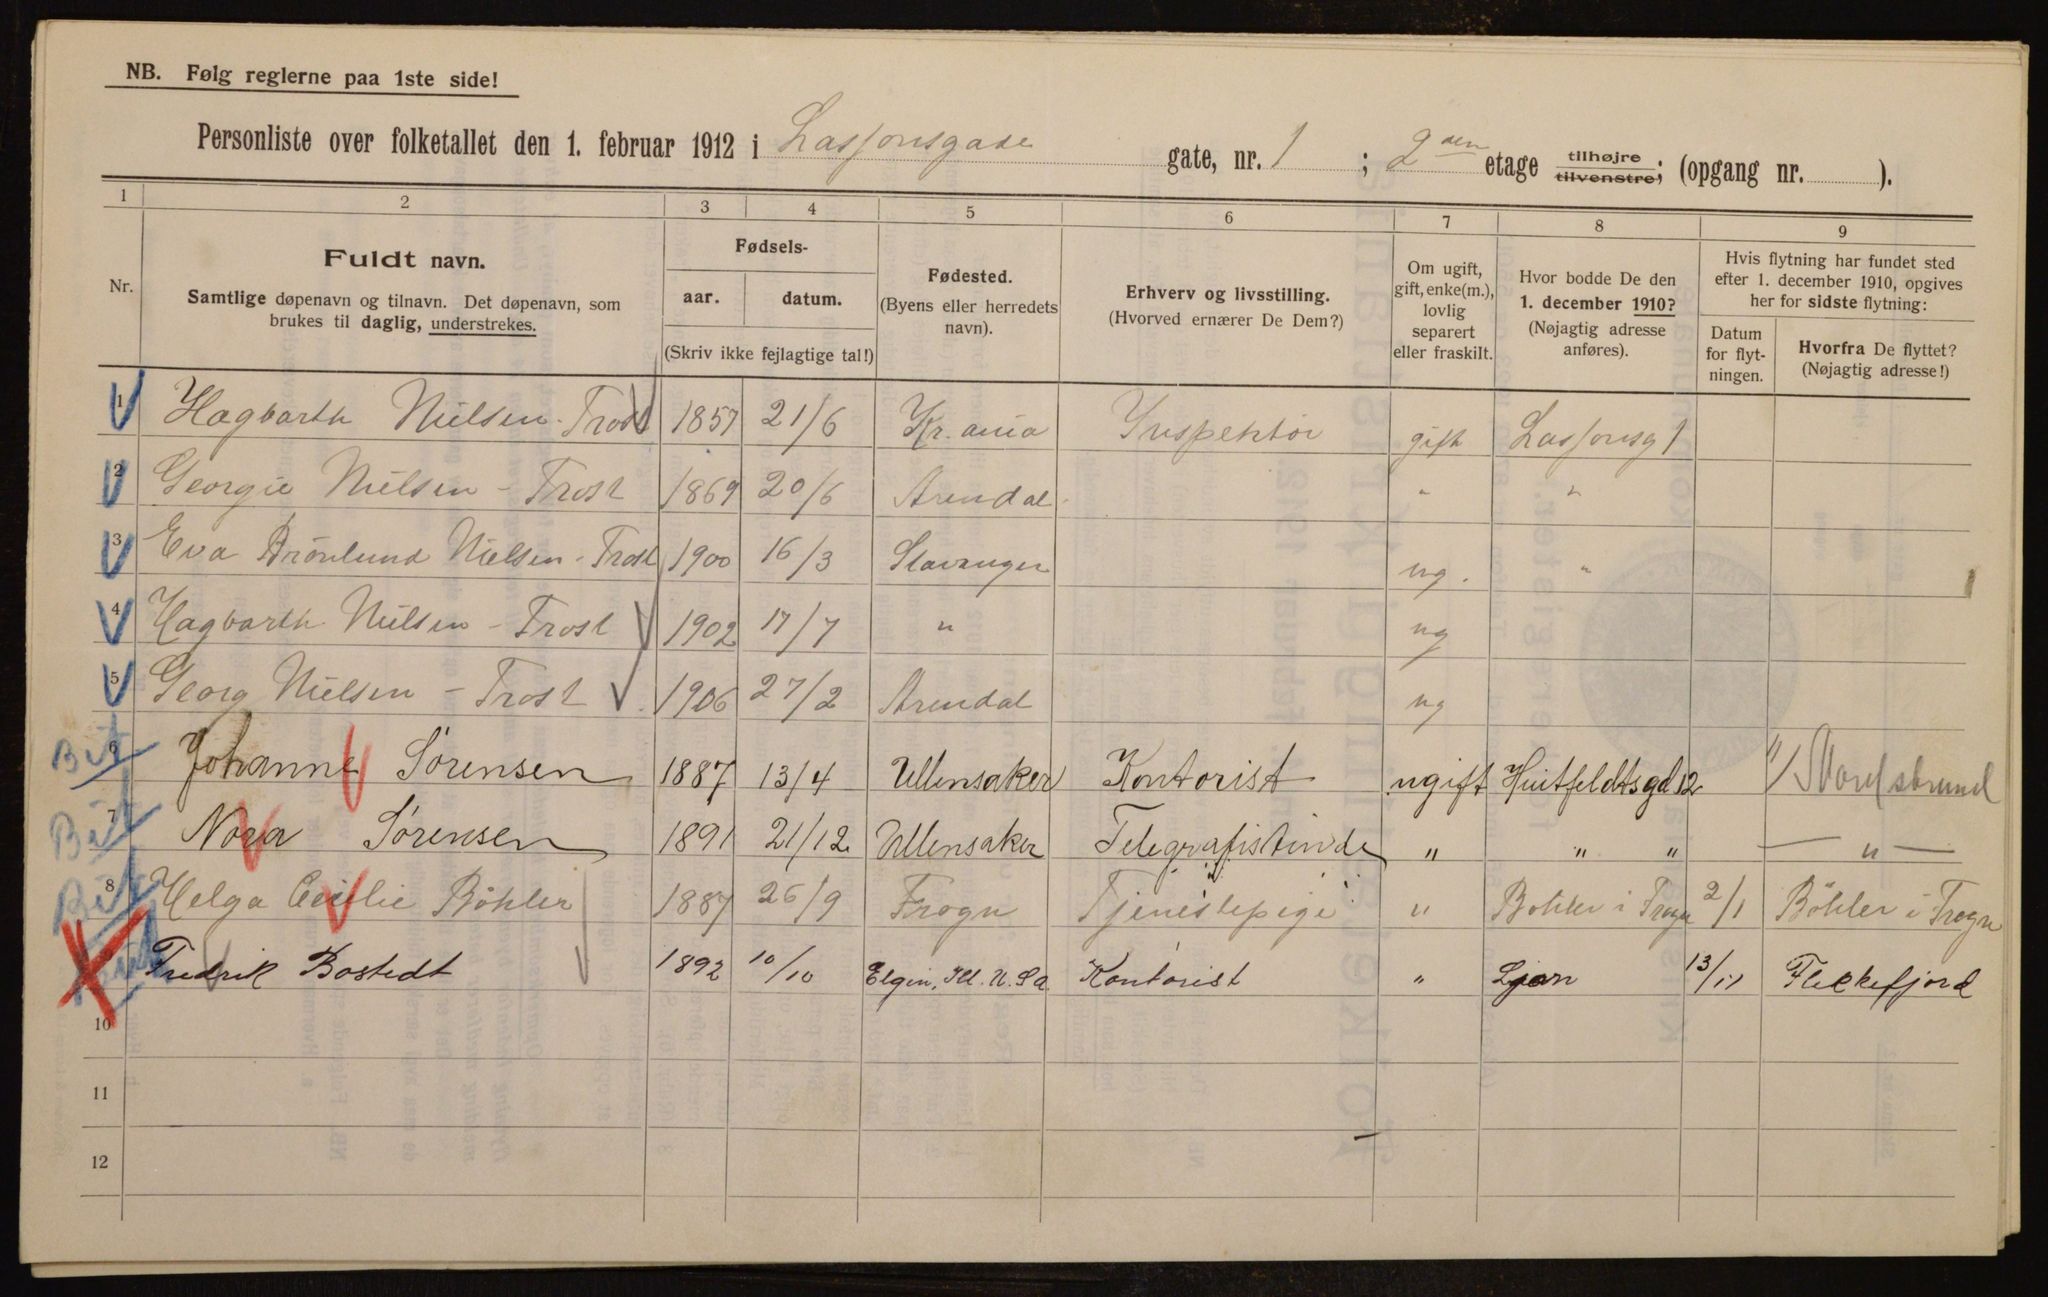 NB. Følg reglerne paa 1ste side!
Personliste over folketallet den 1. februar 1912 i Lassonsgade gate, nr. 1 ; 2den etage tilhøjre tilvenstre; (opgang nr. ).
1 2 3 4 5 6 7 8 9
Nr. Fuldt navn. Samtlige døpenavn og tilnavn. Det døpenavn, som brukes til daglig, understrekes.
Fødsels- aar. datum. (Skriv ikke fejlagtige tal!)
Fødested. (Byens eller herredets navn).
Erhverv og livsstilling. (Hvorved ernærer De Dem?)
Om ugift, gift, enke(m.), lovlig separert eller fraskilt.
Hvor bodde De den 1. december 1910? (Nøjagtig adresse anføres).
Hvis flytning har fundet sted efter 1. december 1910, opgives her for sidste flytning:
Datum for flytningen. Hvorfra De flyttet? (Nøjagtig adresse!)
1 Hagbarth Nielsen-Trost 1857 21/6 Kr.ania Inspektør gift Lassonsg 1
2 Georgie Nielsen-Trost 1869 20/6 Arendal " "
3 Eva Brönlund Nielsen-Trost 1900 16/3 Stavanger ug. "
4 Hagbarth Nielsen-Trost 1902 17/7 " ug
5 Georg Nielsen-Trost 1906 27/2 Arendal ug
6 Johanne Sörensen 1887 13/4 Ullensaker Kontorist ugift Huitfeldtsgd 12
7 Nora Sörensen 1891 21/12 Ullensaker Telegrafistinde " " " — " —
8 Helga Cecilie Böhler 1887 26/9 Frogn Tjenestepige " Böhler i Frogn 2/1 Böhler i Frogn
Fredrik Bostedt 1892 10/10 Elgin, Ill. U. S. a. Kontorist " Ljan 13/11 Flekkefjord
10
11
12